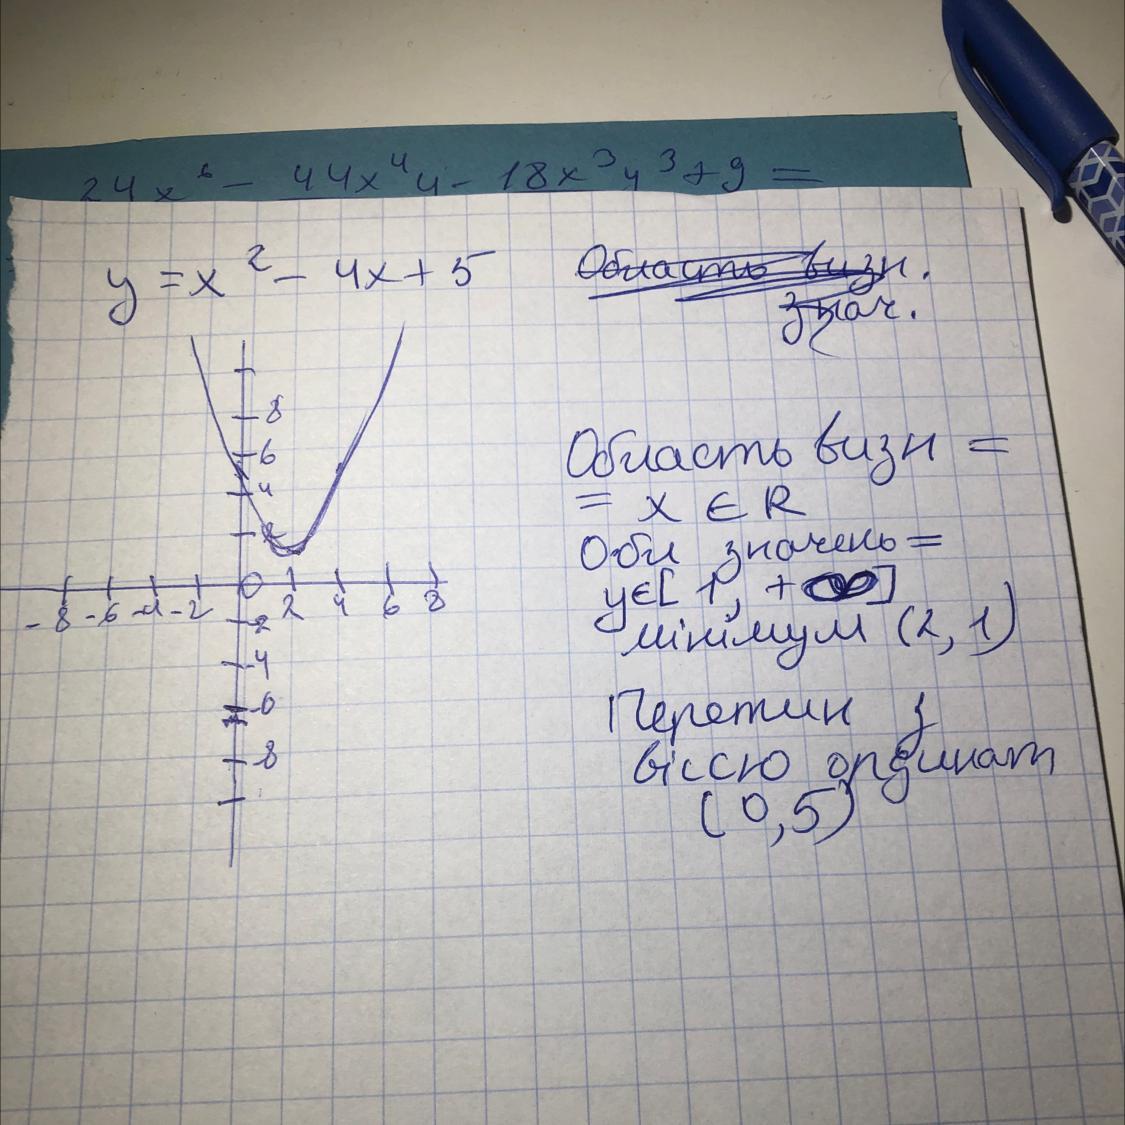 24x⁶ - 44x⁴y - 18x³y³ + 9 =
y = x² - 4x + 5
Область визн.
знач.
8
6
4
2
-8 -6 -4 -2 0 2 4 6 8
-2
-4
-6
-8
Область визн =
= x ∈ R
Обл значень =
y∈[1, +∞]
мінімум (2, 1)
Перетин з
віссю ординат
(0,5)